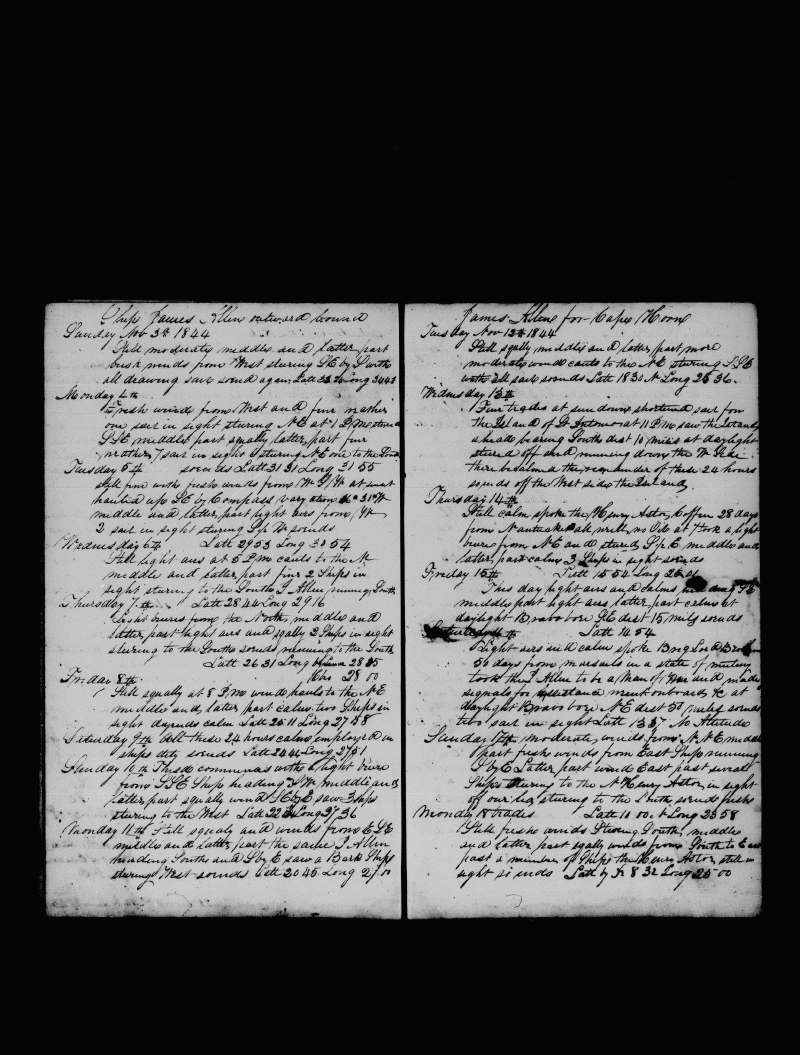 Ship James Allen outward bound
Sunday Nov 3th 1844
Still moderate middle and latter part
brisk winds from West stering SE by S with
all drawing sail sound again Latt 33 26 Long 34
Monday 4th
Fresh winds from West and fine weather
one sail in sight stering NE at 1 PM
SSE middle part squally latter part fine
weather 7 sail in sight 1 stering NE one to the
Tuesday 5th so ends Latt 31 31 Long 31 55
still fine with fresh winds from W S W at
hauled up SE by Compass varyation
middle and latter part light airs from W
2 sail in sight stering S by W so ends
Wednesday 6th Latt 29 53 Long 30 54
Still light airs at 5 PM cauls to the N
middle and latter part fine 2 Ships in
sight stering to the South J Allen runing South
Thursday 7th Latt 28 44 Long 29 16
breses from the North middle and
latter part light airs and squally 2 Ships in sight
stering to the South so ends running to the South
Latt 26 31 Long by Luna 28
Friday 8th 28 00
Still squally at 8 PM wind hauls to the NE
middle and latter part calm two Ships in
sight so ends calm Latt 25 11 Long 27 58
Saturday 9th still these 24 hours calm employed in
ships duty so ends Latt 24 Long 27 51
Sunday 10th Thise commences with a light brese
from SSE Ship heading SW middle and
latter part squally wind SE by E saw 3 ships
stering to the West Latt 22 Long 27 36
Monday 11th Still squaly and winds from ESE
middle and latter part the same J Allen
heading South and S by E saw a Bark Ships
stering West so ends Latt 20 45 Long 27 00
James Allen for Cape Horn
Tuesday Nov 12th 1844
Still sqally middle and latter part more
moderate wind cauls to the NE stering SSE
with all sail so ends Latt 18 30 N Long 26 36
Wednsday 13th
Fine trades at sun down shortend sail for
the Island of St Antonio at 11 PM saw the Island
ahead bearing South dist 10 miles at daylight
steerd off and running down the W side
there becalmd the remander of these 24 hours
so ends off the West side the Island
Thursday 14th
Still calm spoke the Henry Astor Coffin 28 days
from Nantucket all well no Oil at 7 took a light
brese from NE and steerd S by E middle and
latter part calms 3 Ships in sight so ends
Friday 15th Latt 15 54 Long 26 01
This day light airs and calms
middle part light airs latter part calms at
daylight Bravo bore SE dist 15 miles so ends
Saturday 16th Latt 14 54
Light airs and calm spoke Brig
56 days from in a state of mutiny
took the J Allen to be a Man of War and made
signals for assistance went onboard &c at
daylight Bravo bore NE dist 50 miles so ends
two sail in sight Latt 13 37 No Altitude
Sunday 17th moderate winds from NNE middle
part fresh winds from East Ship running
S by E Latter part wind East past several
Ships stering to the N Henry Astor in sight
of our lee stering to the South so ends fresh
Monday 18 trades Latt 11 00 N Long 25 58
Still freshe winds Stering South middle
and latter part sqally winds from South to East
past a number of Ships the Henry Astor still in
sight so ends Latt by 8 32 Long 25 00